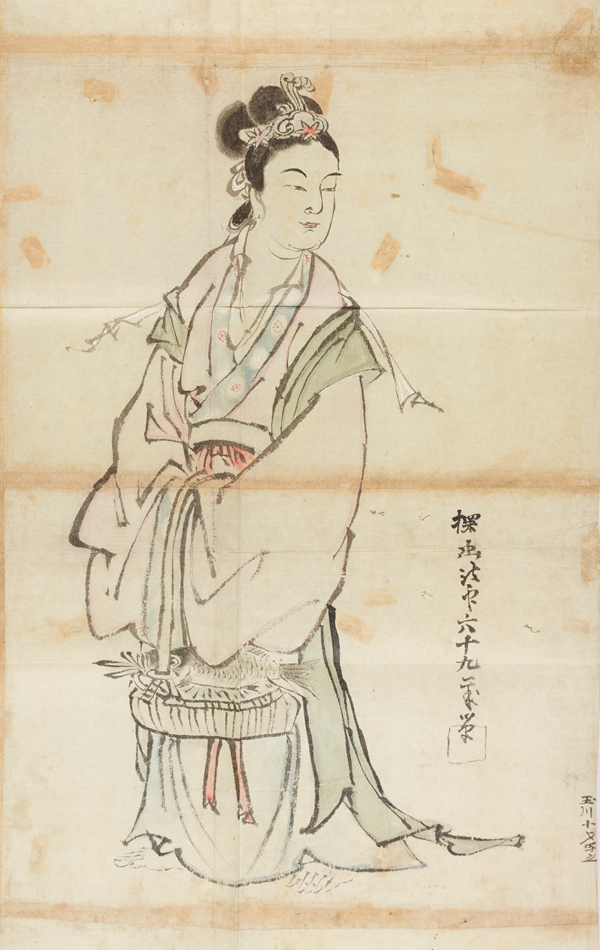 探幽法印六十九歳筆
玉川十写之